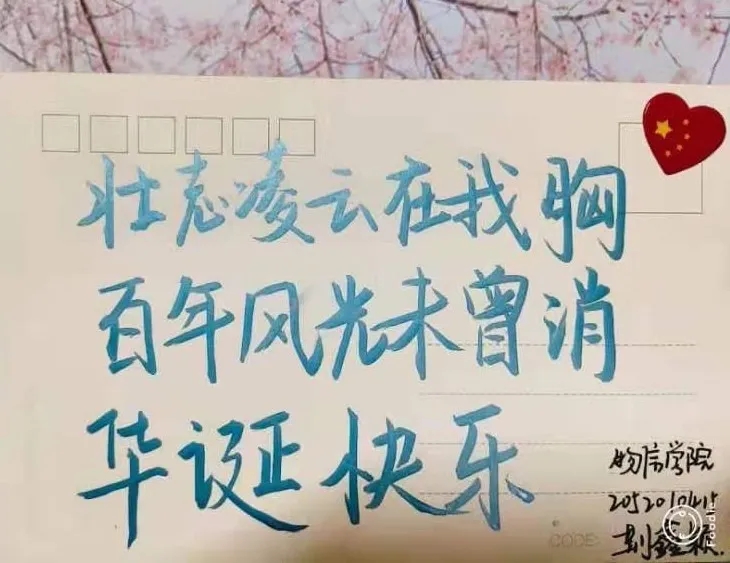 壮志凌云在我胸
百年风光未曾消
华诞快乐
物信学院
CODE:
Foodie